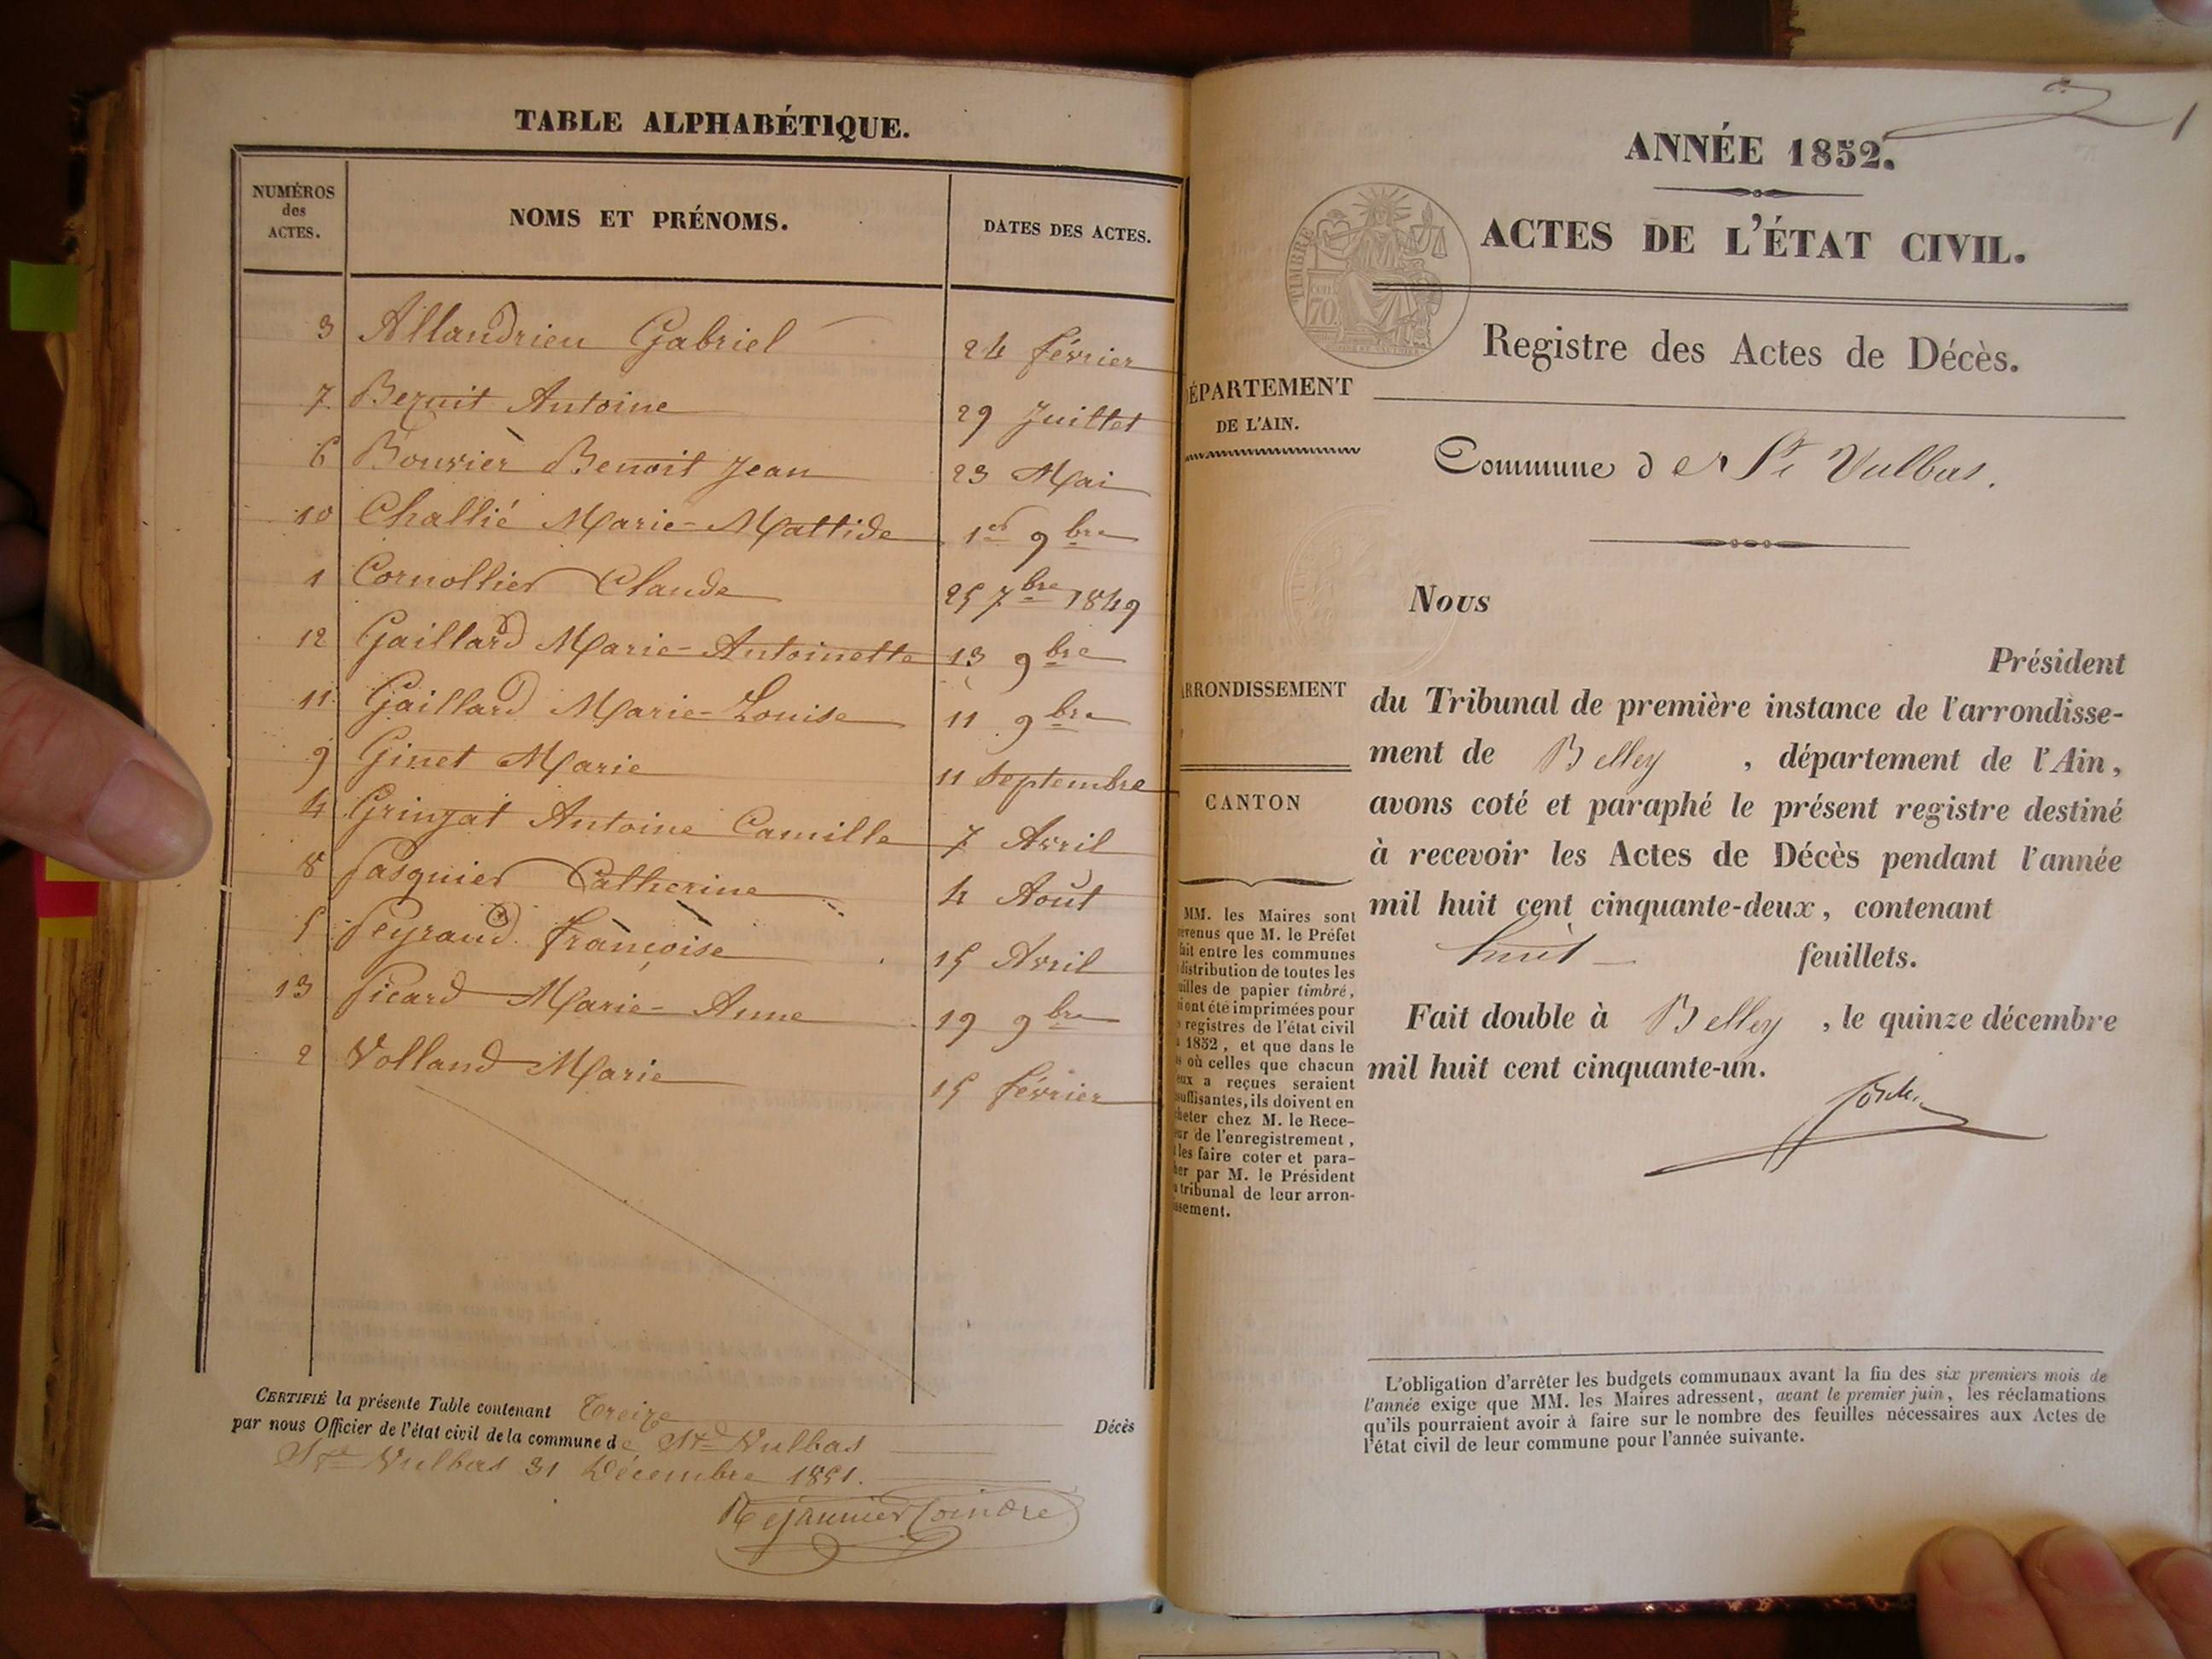 TABLE ALPHABÉTIQUE.
NUMÉROS des ACTES. NOMS ET PRÉNOMS. DATES DES ACTES.
3 Allandrieu Gabriel 24 février
7 Bezuit Antoine 29 Juillet
6 Bouvier Benoit Jean 23 Mai
10 Challié Marie-Mattide 1er 9bre
1 Cornollier Claude 25 7bre 1849
12 Gaillard Marie-Antoinette 13 9bre
11 Gaillard Marie-Louise 11 9bre
9 Ginet Marie 11 Septembre
4 Gringat Antoine Camille 7 Avril
8 Pasquier Catherine 4 Août
5 Peyraud Françoise 15 Avril
13 Picard Marie-Anne 19 9bre
2 Volland Marie 15 février
CERTIFIÉ la présente Table contenant Treize Décès
par nous Officier de l'état civil de la commune de St Vulbas
St Vulbas 31 Décembre 1851.
Rejannier Coindre
ANNÉE 1852.
ACTES DE L'ÉTAT CIVIL.
TIMBRE
70
Registre des Actes de Décès.
ÉPARTEMENT
DE L'AIN.
Commune de St Vulbas.
Nous
Président
RRONDISSEMENT
du Tribunal de première instance de l'arrondisse-
ment de Belley, département de l'Ain,
CANTON
avons coté et paraphé le présent registre destiné
à recevoir les Actes de Décès pendant l'année
mil huit cent cinquante-deux, contenant
huit feuillets.
Fait double à Belley, le quinze décembre
mil huit cent cinquante-un.
MM. les Maires sont
evenus que M. le Préfet
fait entre les communes
distribution de toutes les
uilles de papier timbré,
i ont été imprimées pour
s registres de l'état civil
1852, et que dans le
s où celles que chacun
eux a reçues seraient
suffisantes, ils doivent en
heter chez M. le Rece-
ur de l'enregistrement,
les faire coter et para-
her par M. le Président
tribunal de leur arron-
issement.
L'obligation d'arrêter les budgets communaux avant la fin des six premiers mois de
l'année exige que MM. les Maires adressent, avant le premier juin, les réclamations
qu'ils pourraient avoir à faire sur le nombre des feuilles nécessaires aux Actes de
l'état civil de leur commune pour l'année suivante.